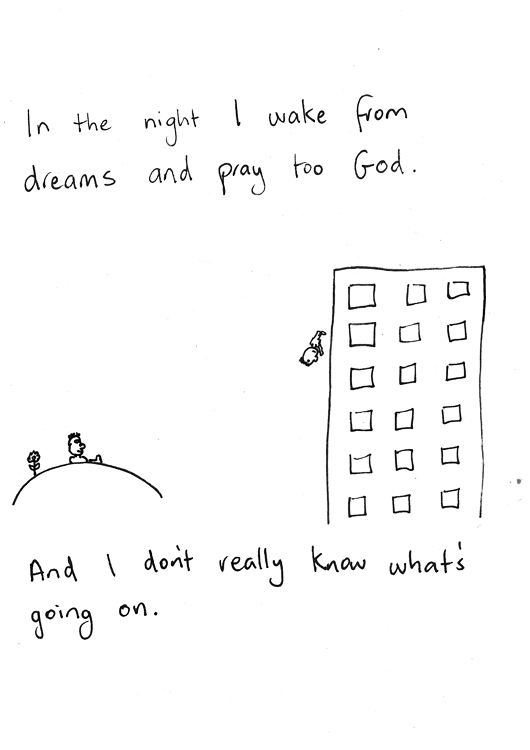 In the night I wake from
dreams and pray too God.
And I don't really know what's
going on.